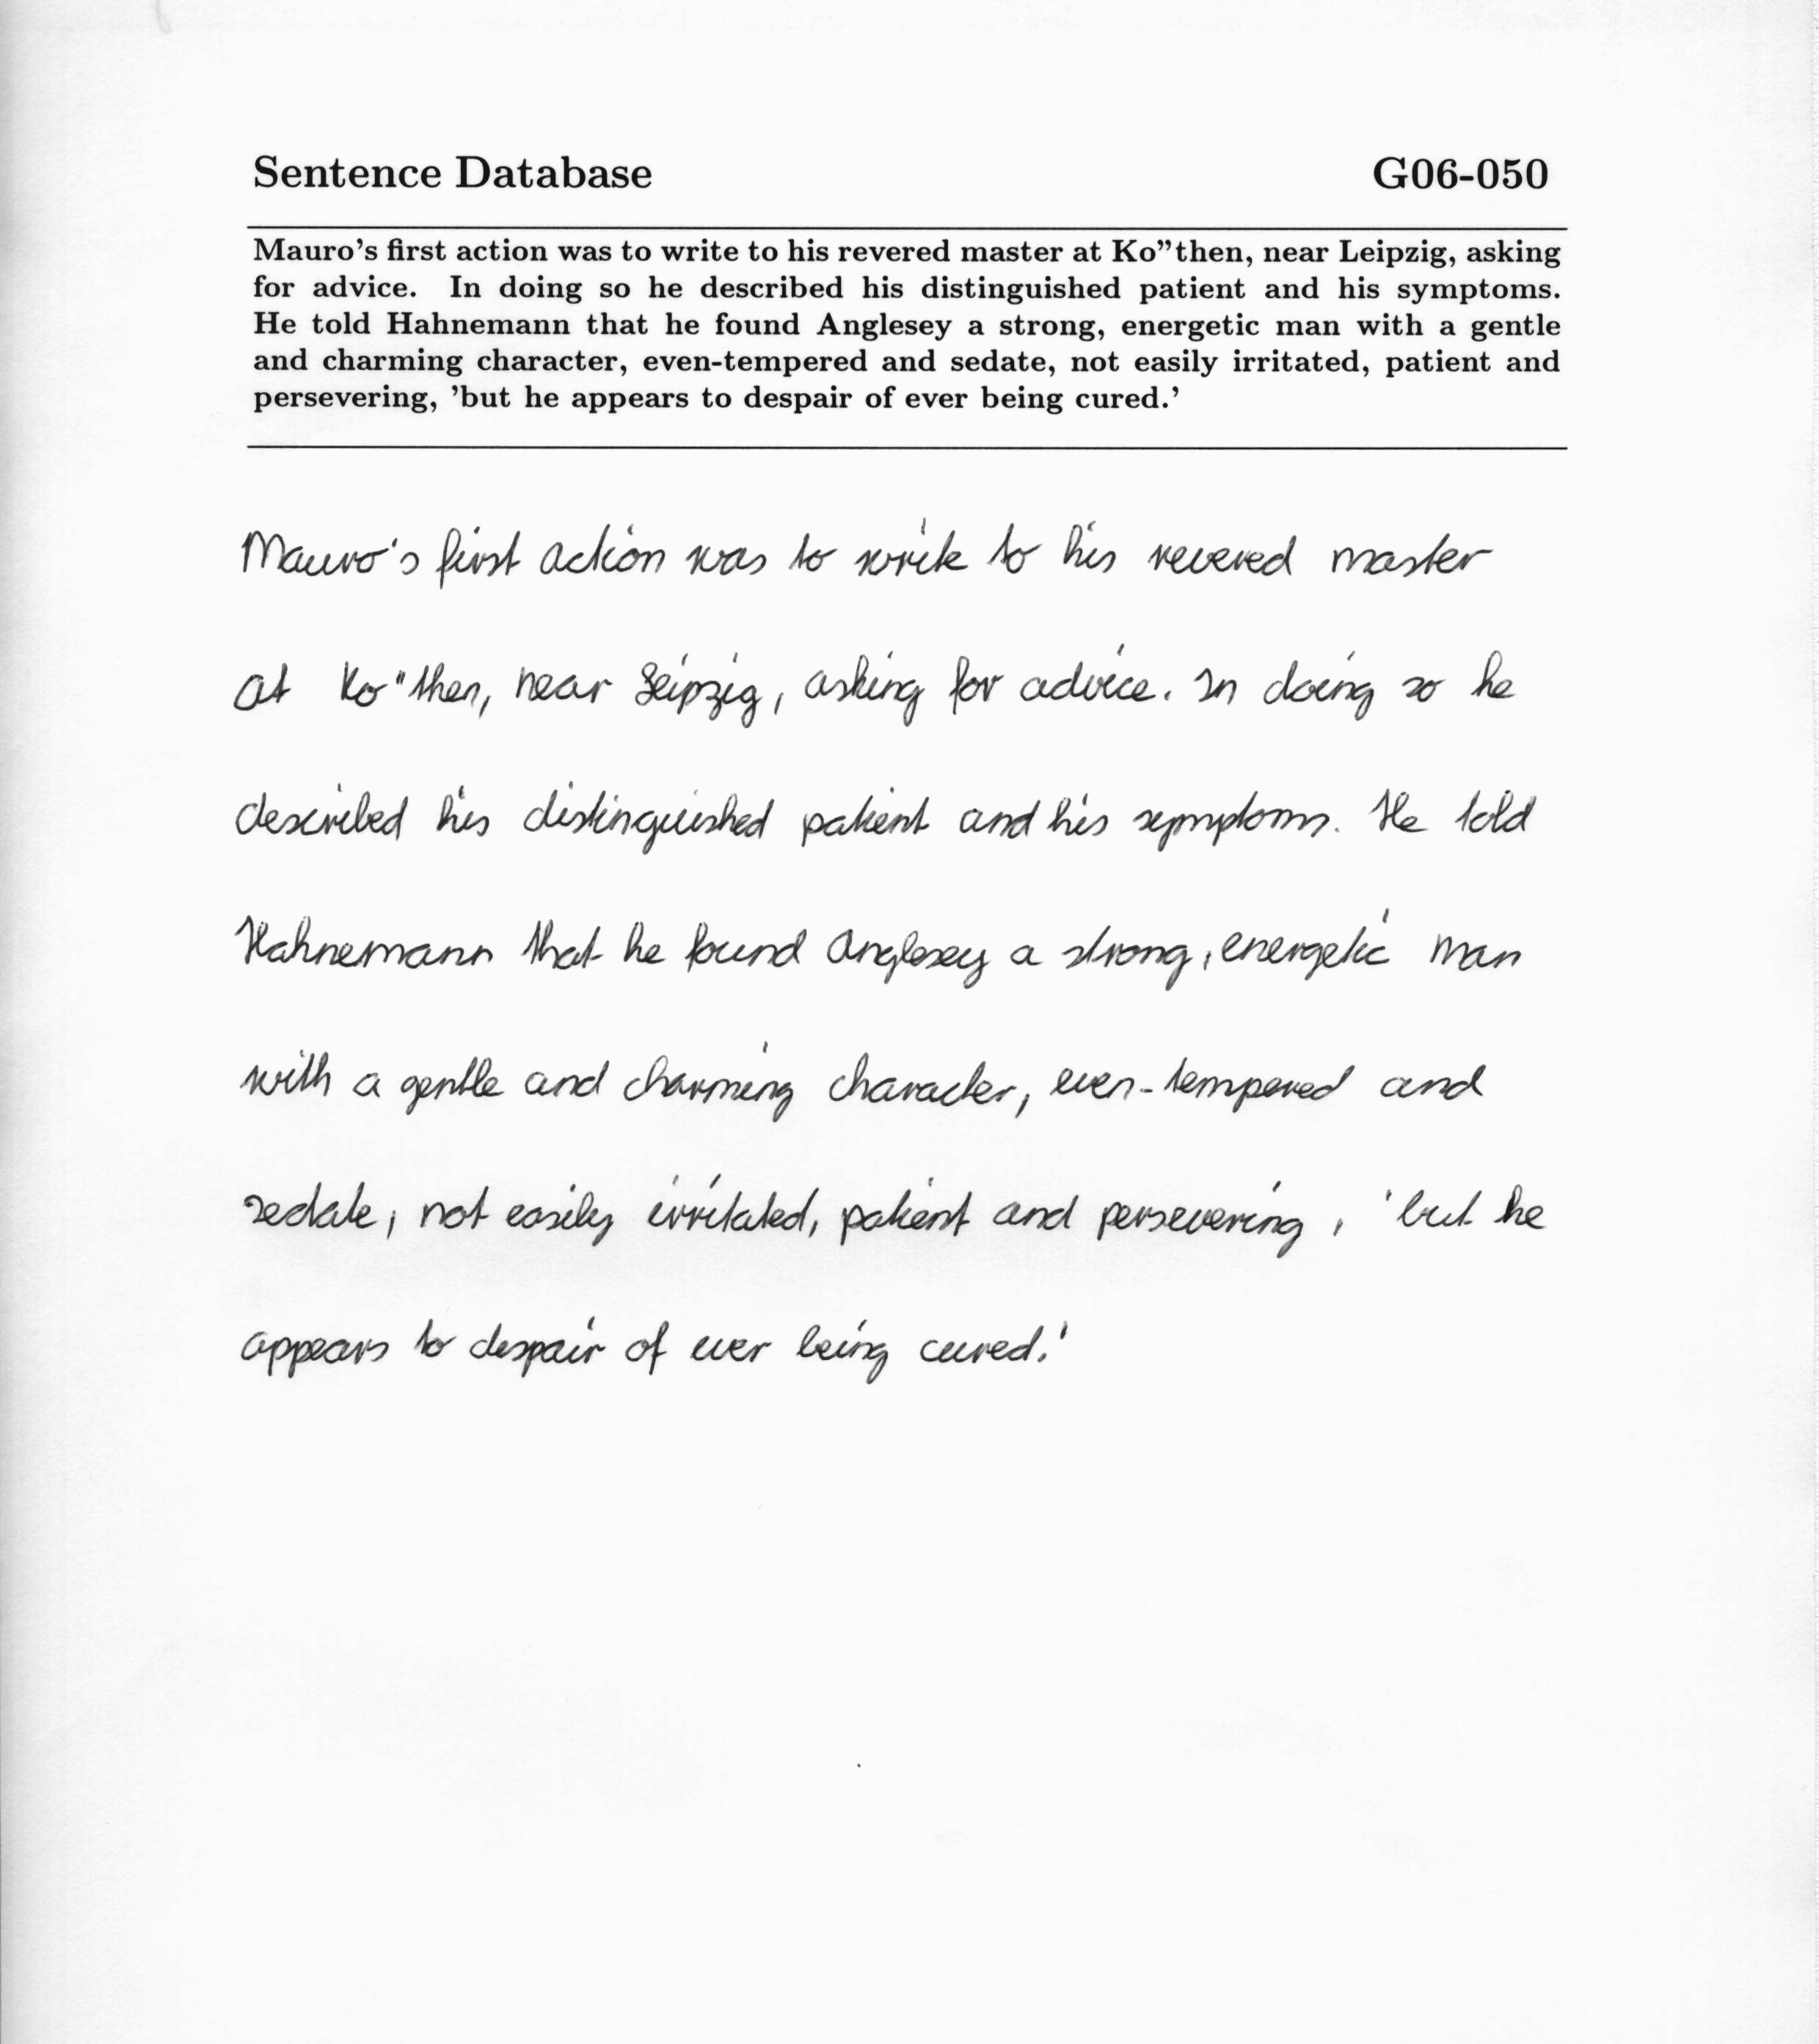 Sentence Database G06-050
Mauro's first action was to write to his revered master at Ko"then, near Leipzig, asking
for advice. In doing so he described his distinguished patient and his symptoms.
He told Hahnemann that he found Anglesey a strong, energetic man with a gentle
and charming character, even-tempered and sedate, not easily irritated, patient and
persevering, 'but he appears to despair of ever being cured.'
Mauro's first action was to write to his revered master
at Ko"then, near Leipzig, asking for advice. In doing so he
described his distinguished patient and his symptoms. He told
Hahnemann that he found Anglesey a strong, energetic man
with a gentle and charming character, even-tempered and
sedate, not easily irritated, patient and persevering, 'but he
appears to despair of ever being cured.'